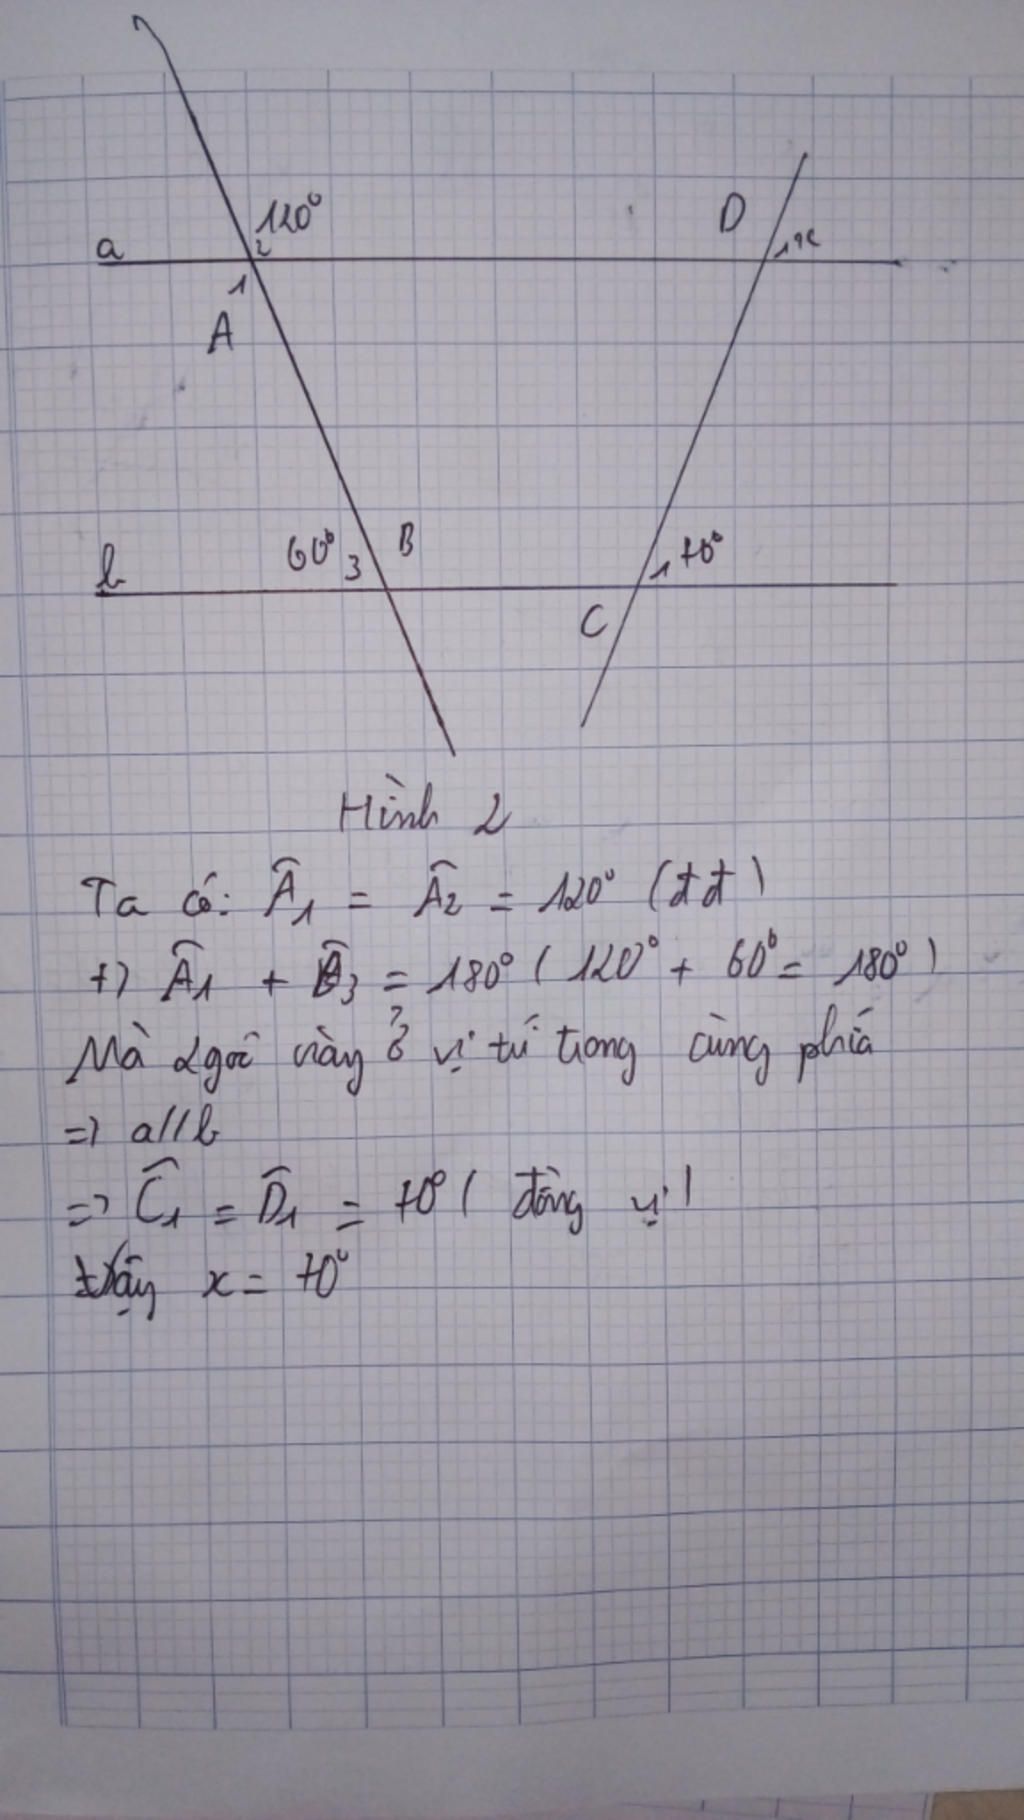 120°
a
2
1
A
D
1 x
60° 3
B
b
1 70°
C
Hình 2
Ta có: Â1 = Â2 = 120° (đđ)
+) Â1 + B̂3 = 180° (120° + 60° = 180°)
Mà 2 góc này ở vị trí trong cùng phía
=> a//b
=> Ĉ1 = D̂1 = 70° (đồng vị)
Vậy x = 70°